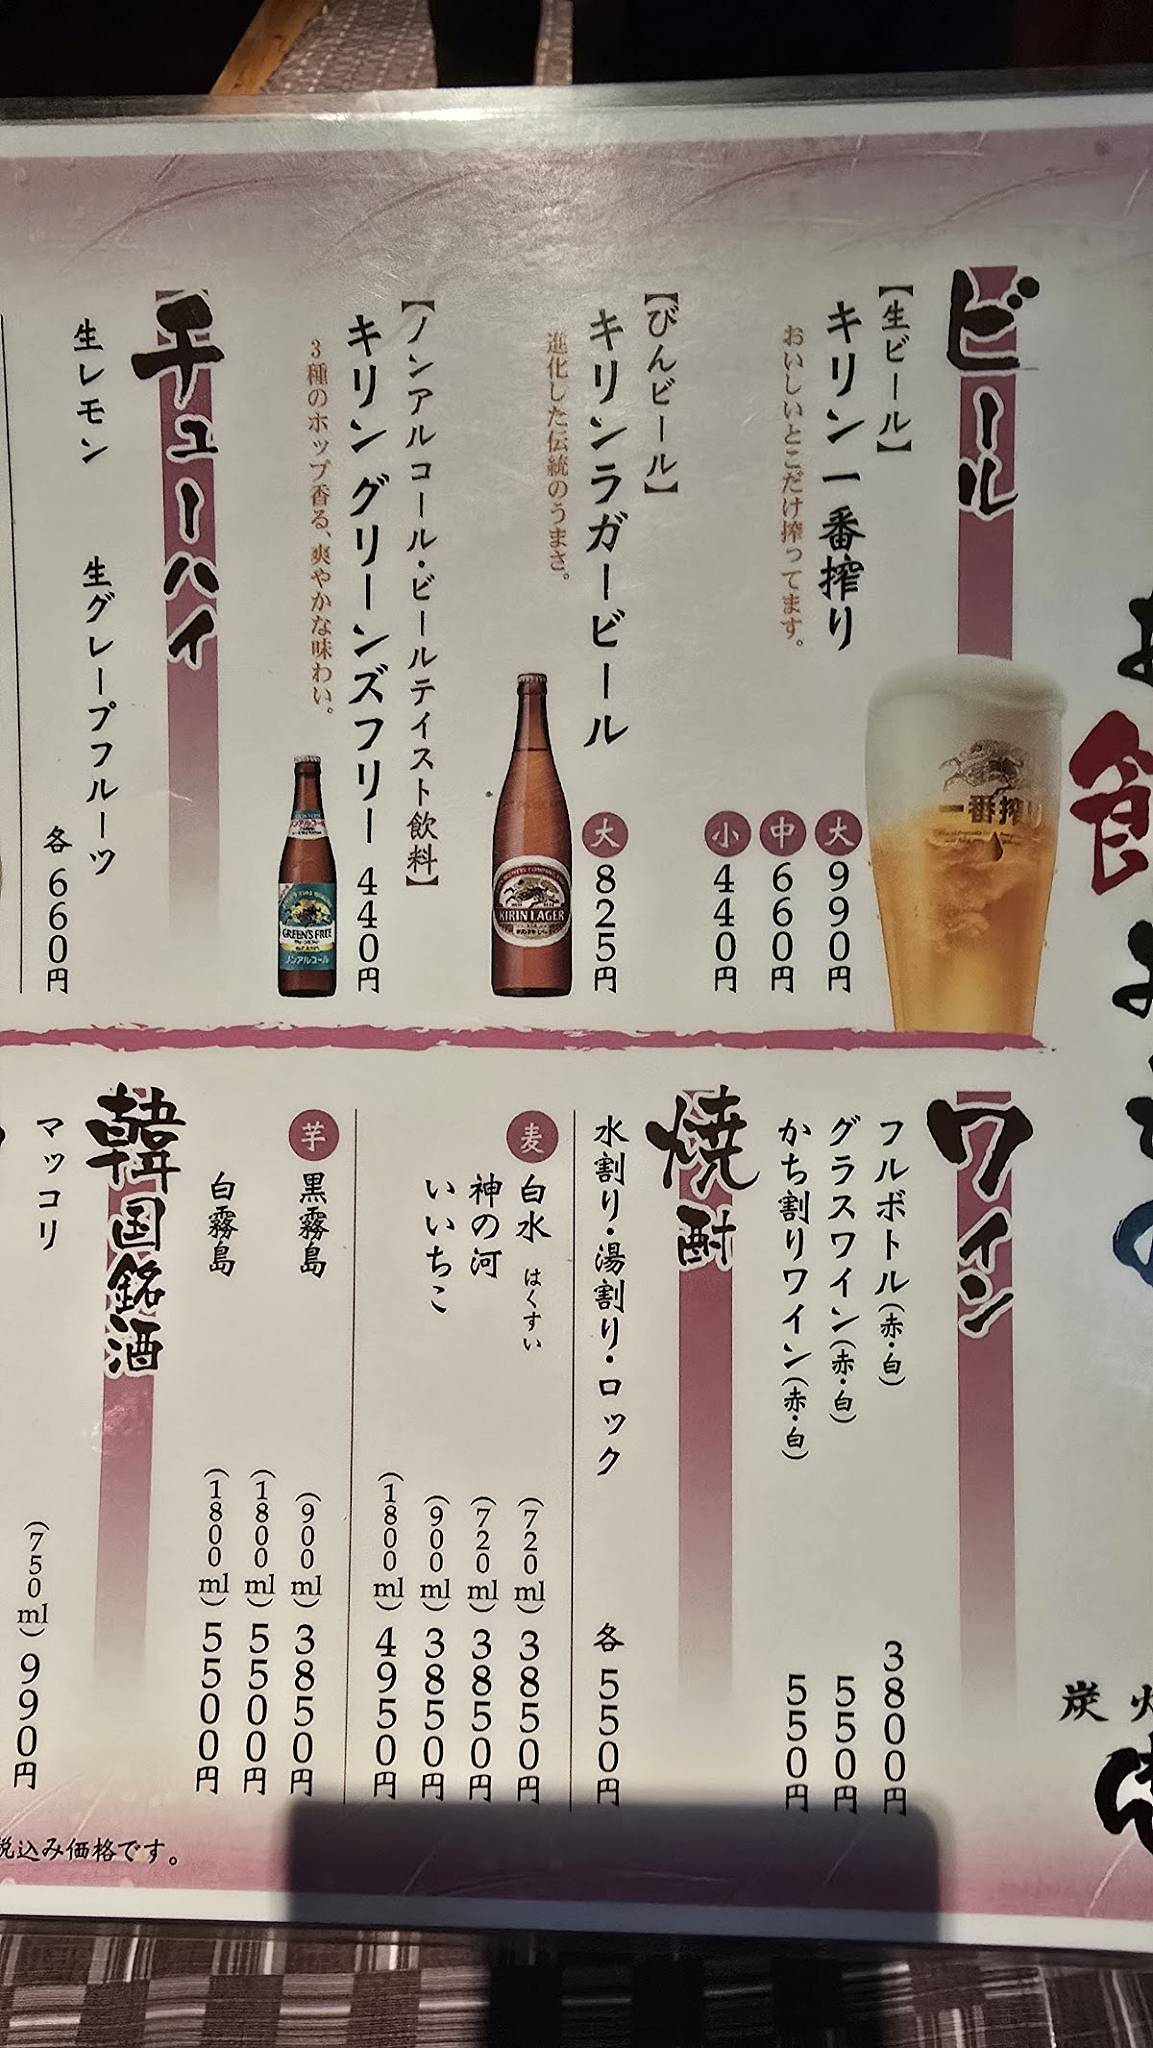 お食
炭火
ビール
【生ビール】
キリン一番搾り
おいしいとこだけ搾ってます。
大 990円
中 660円
小 440円
一番搾り
【びんビール】
キリンラガービール
大 825円
進化した伝統のうまさ。
KIRIN LAGER
【ノンアルコール・ビールテイスト飲料】
キリン グリーンズフリー 440円
3種のホップ香る、爽やかな味わい。
ノンアルコール
GREEN'S FREE
ノンアルコール
チューハイ
生レモン 生グレープフルーツ
各660円
ワイン
フルボトル(赤・白) 3800円
グラスワイン(赤・白) 550円
かち割りワイン(赤・白) 550円
焼酎
水割り・湯割り・ロック 各550円
麦 白水 はくすい (720ml) 3850円
神の河 (720ml) 3850円
いいちこ (900ml) 3850円
(1800ml) 4950円
芋 黒霧島 (900ml) 3850円
(1800ml) 5500円
白霧島 (1800ml) 5500円
韓国銘酒
マッコリ (750ml) 990円
税込み価格です。